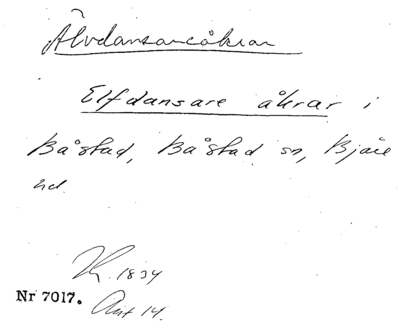 Älvdansareåkrar
Elfdansare åkrar i
Båstad, Båstad sn, Bjäre
hd.
1834
Nr 7017. Akt 14.